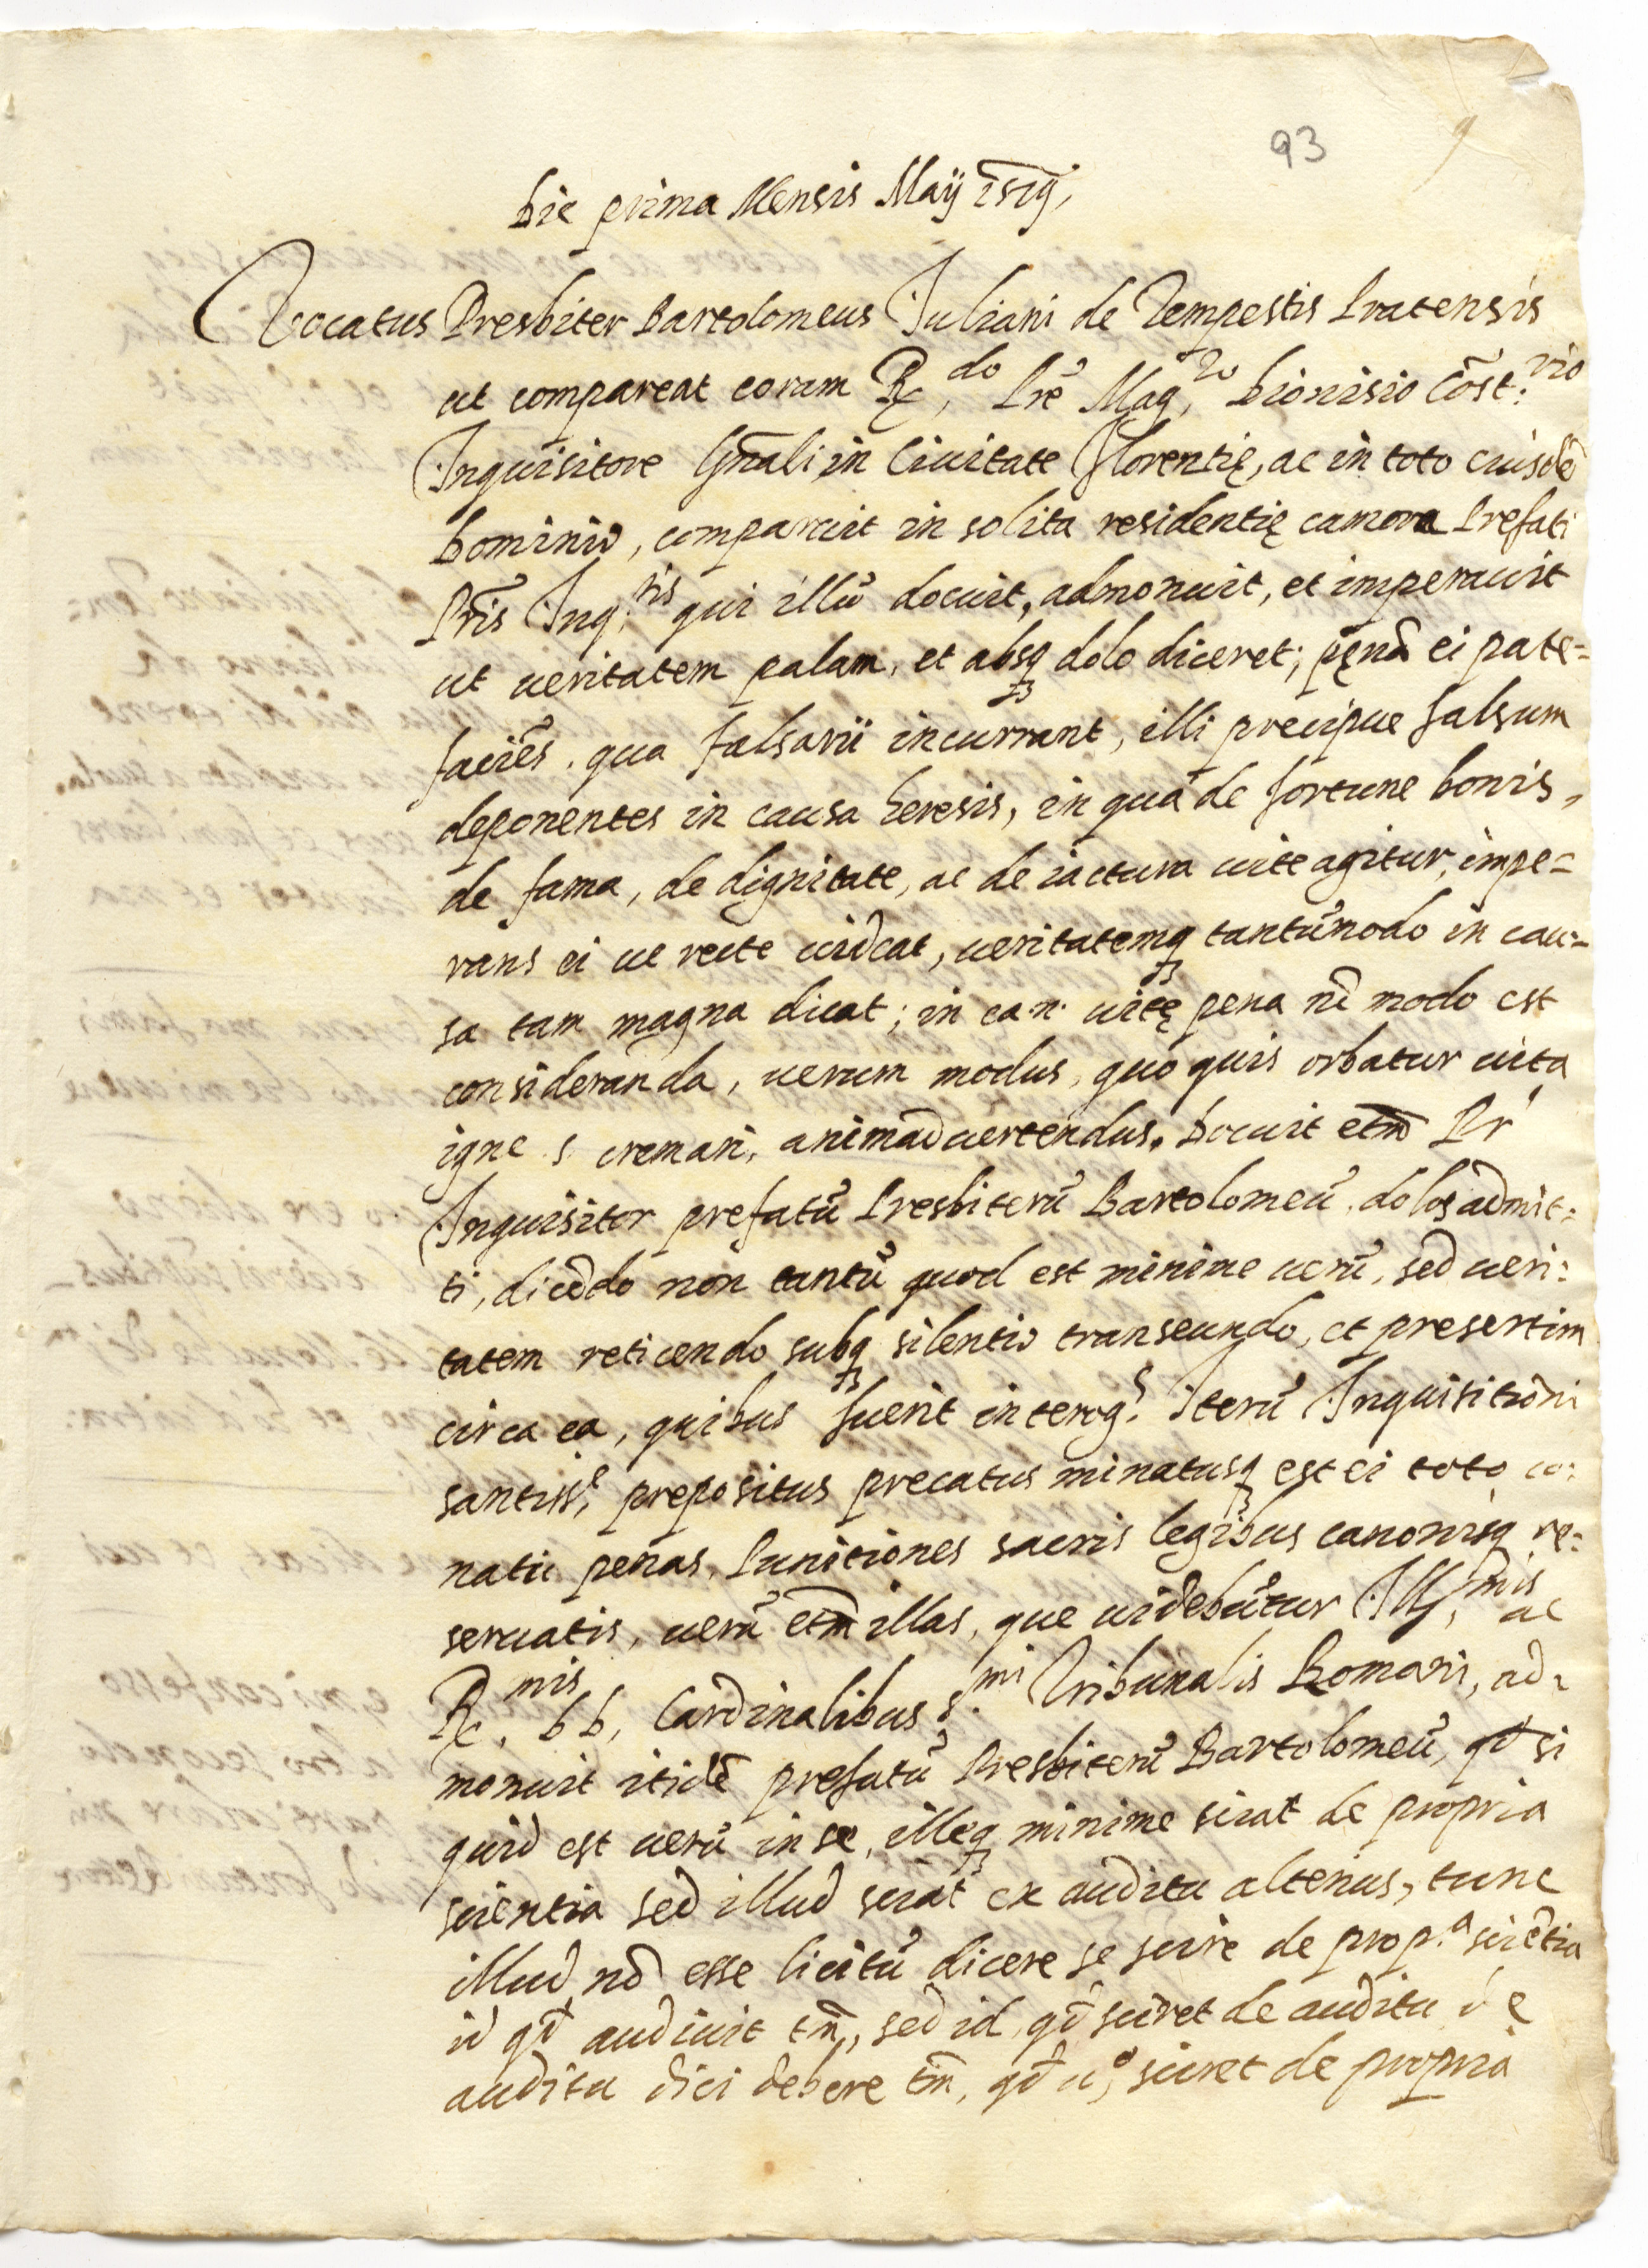 93
Die prima Mensis Maij
Vocatus Presbiter Bartolomeus Juliani de Tempestis Pratensis
ut compareat coram R.do Pre Mag.ro Dionisio Cost.rio
Inquisitore Gnali in Ciuitate Florentię, ac in toto eiusdē
Dominio, comparuit in solita residentię camera Prefati
Pris Inq.ris qui illū docuit, admonuit, et imperauit
ut ueritatem palam, et absq dolo diceret; pęnā ei pate=
faciēs. qua falsarii incurrant, illi precipue falsum
deponentes in causa heresis, in qua de fortune bonis,
de fama, de dignitate, ac de iactura uite agitur, impe=
rans ei ut recte uideat, ueritatemq tantūmodo in cau=
sa tam magna dicat; in ea n. uitę pena nō modo est
consideranda, uerum modus, quo quis orbatur uita
igne s. cremari, animaduertendus. Docuit etm Pr
Inquisitor prefatū Presbiterū Bartolomeū. dolos admit=
ti, dicēdo non tantū quod est minime uerū, sed ueri=
tatem reticendo subq silentio transeundo, et presertim
circa ea, quibus fuerit interog.s Iterū Inquisitioni
santiss.e prepositus precatus minatusq est ei toto co=
natu penas, Punitiones sacris legibus canonisq re=
seruatis, uerū etm illas, que uidebūtur Ill.mis ac
R.mis DD. Cardinalibus s.mi Tribunalis Romani, ad=
monuit itidē prefatū Presbiterū Bartolomeū, qd si
quid est uerū in se, illeq minime sciat de propria
scientia sed illud sciat ex auditu alterius, tunc
illud nō esse licitū dicere se scire de prop.a sciētia
id qd audiuit tm, sed id, qd sciret de auditu de
auditu dici debere tm, qd u.o sciret de propria